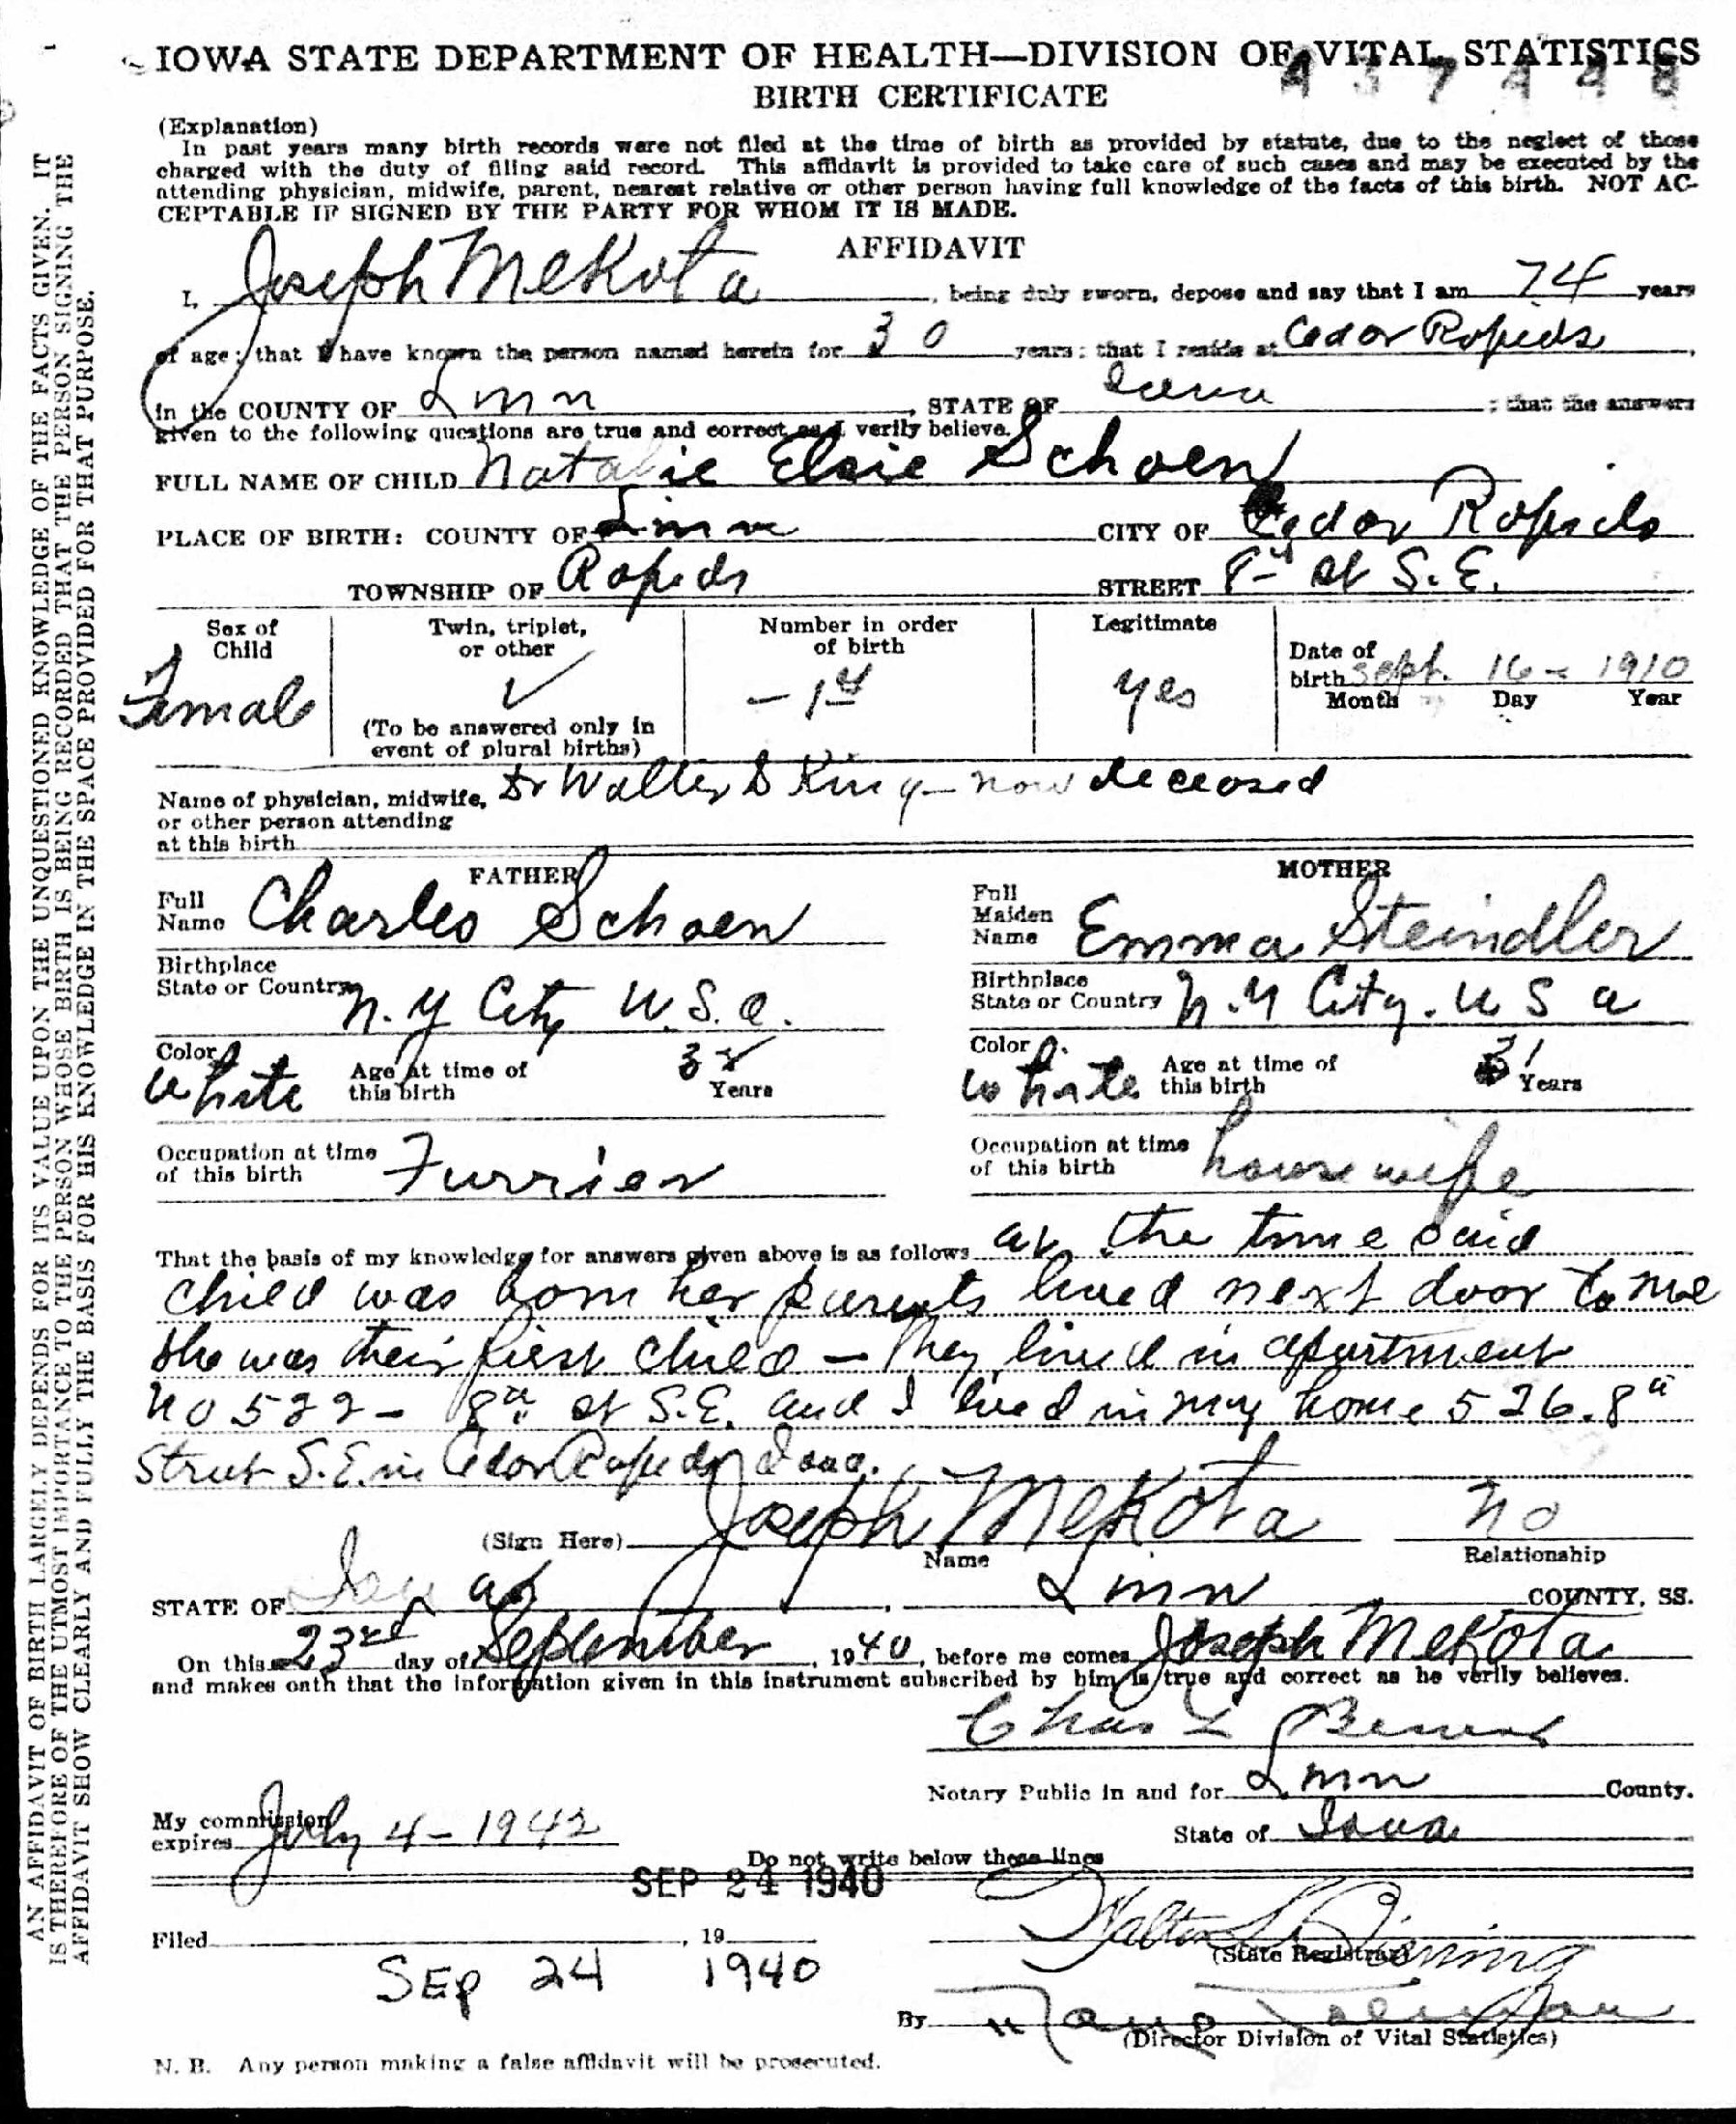 IOWA STATE DEPARTMENT OF HEALTH—DIVISION OF VITAL STATISTICS
437448
BIRTH CERTIFICATE
(Explanation)
In past years many birth records were not filed at the time of birth as provided by statute, due to the neglect of those
charged with the duty of filing said record. This affidavit is provided to take care of such cases and may be executed by the
attending physician, midwife, parent, nearest relative or other person having full knowledge of the facts of this birth. NOT AC-
CEPTABLE IF SIGNED BY THE PARTY FOR WHOM IT IS MADE.
AFFIDAVIT
I, Joseph Mekota, being duly sworn, depose and say that I am 74 years
of age; that I have known the person named herein for 30 years; that I reside at Cedar Rapids,
in the COUNTY OF Linn, STATE OF Iowa; that the answers
given to the following questions are true and correct as I verily believe.
FULL NAME OF CHILD Natalie Elsie Schoen
PLACE OF BIRTH: COUNTY OF Linn CITY OF Cedar Rapids
TOWNSHIP OF Rapids STREET 8th St S.E.
Sex of Child Female
Twin, triplet, or other ✓ (To be answered only in event of plural births)
Number in order of birth – 1st
Legitimate yes
Date of birth Sept. 16 – 1910
Month Day Year
Name of physician, midwife, or other person attending at this birth Dr Walter D King – now deceased
FATHER MOTHER
Full Name Charles Schoen
Full Maiden Name Emma Steindler
Birthplace State or Country N.Y City U.S.a.
Birthplace State or Country N.Y City. U S a
Color White Age at time of this birth 32 Years
Color White Age at time of this birth 31 Years
Occupation at time of this birth Furrier
Occupation at time of this birth housewife
That the basis of my knowledge for answers given above is as follows at the time said
child was born her parents lived next door to me
She was their first child – They lived in apartment
No 522 – 8th St S.E. and I lived in my home 526. 8th
Street S.E. in Cedar Rapids Iowa.
(Sign Here) Joseph Mekota No
Name Relationship
STATE OF Iowa, Linn COUNTY, SS.
On this 23rd day of September, 1940, before me comes Joseph Mekota
and makes oath that the information given in this instrument subscribed by him is true and correct as he verily believes.
Chas L
Notary Public in and for Linn County.
My commission expires July 4 – 1942
State of Iowa
Do not write below these lines
SEP 24 1940
Walter L. Bierring
Filed , 19
(State Registrar)
Sep 24 1940
By
(Director Division of Vital Statistics)
N. B. Any person making a false affidavit will be prosecuted.
AN AFFIDAVIT OF BIRTH LARGELY DEPENDS FOR ITS VALUE UPON THE UNQUESTIONED KNOWLEDGE OF THE FACTS GIVEN. IT
IS THEREFORE OF THE UTMOST IMPORTANCE TO THE PERSON WHOSE BIRTH IS BEING RECORDED THAT THE PERSON SIGNING THE
AFFIDAVIT SHOW CLEARLY AND FULLY THE BASIS FOR HIS KNOWLEDGE IN THE SPACE PROVIDED FOR THAT PURPOSE.